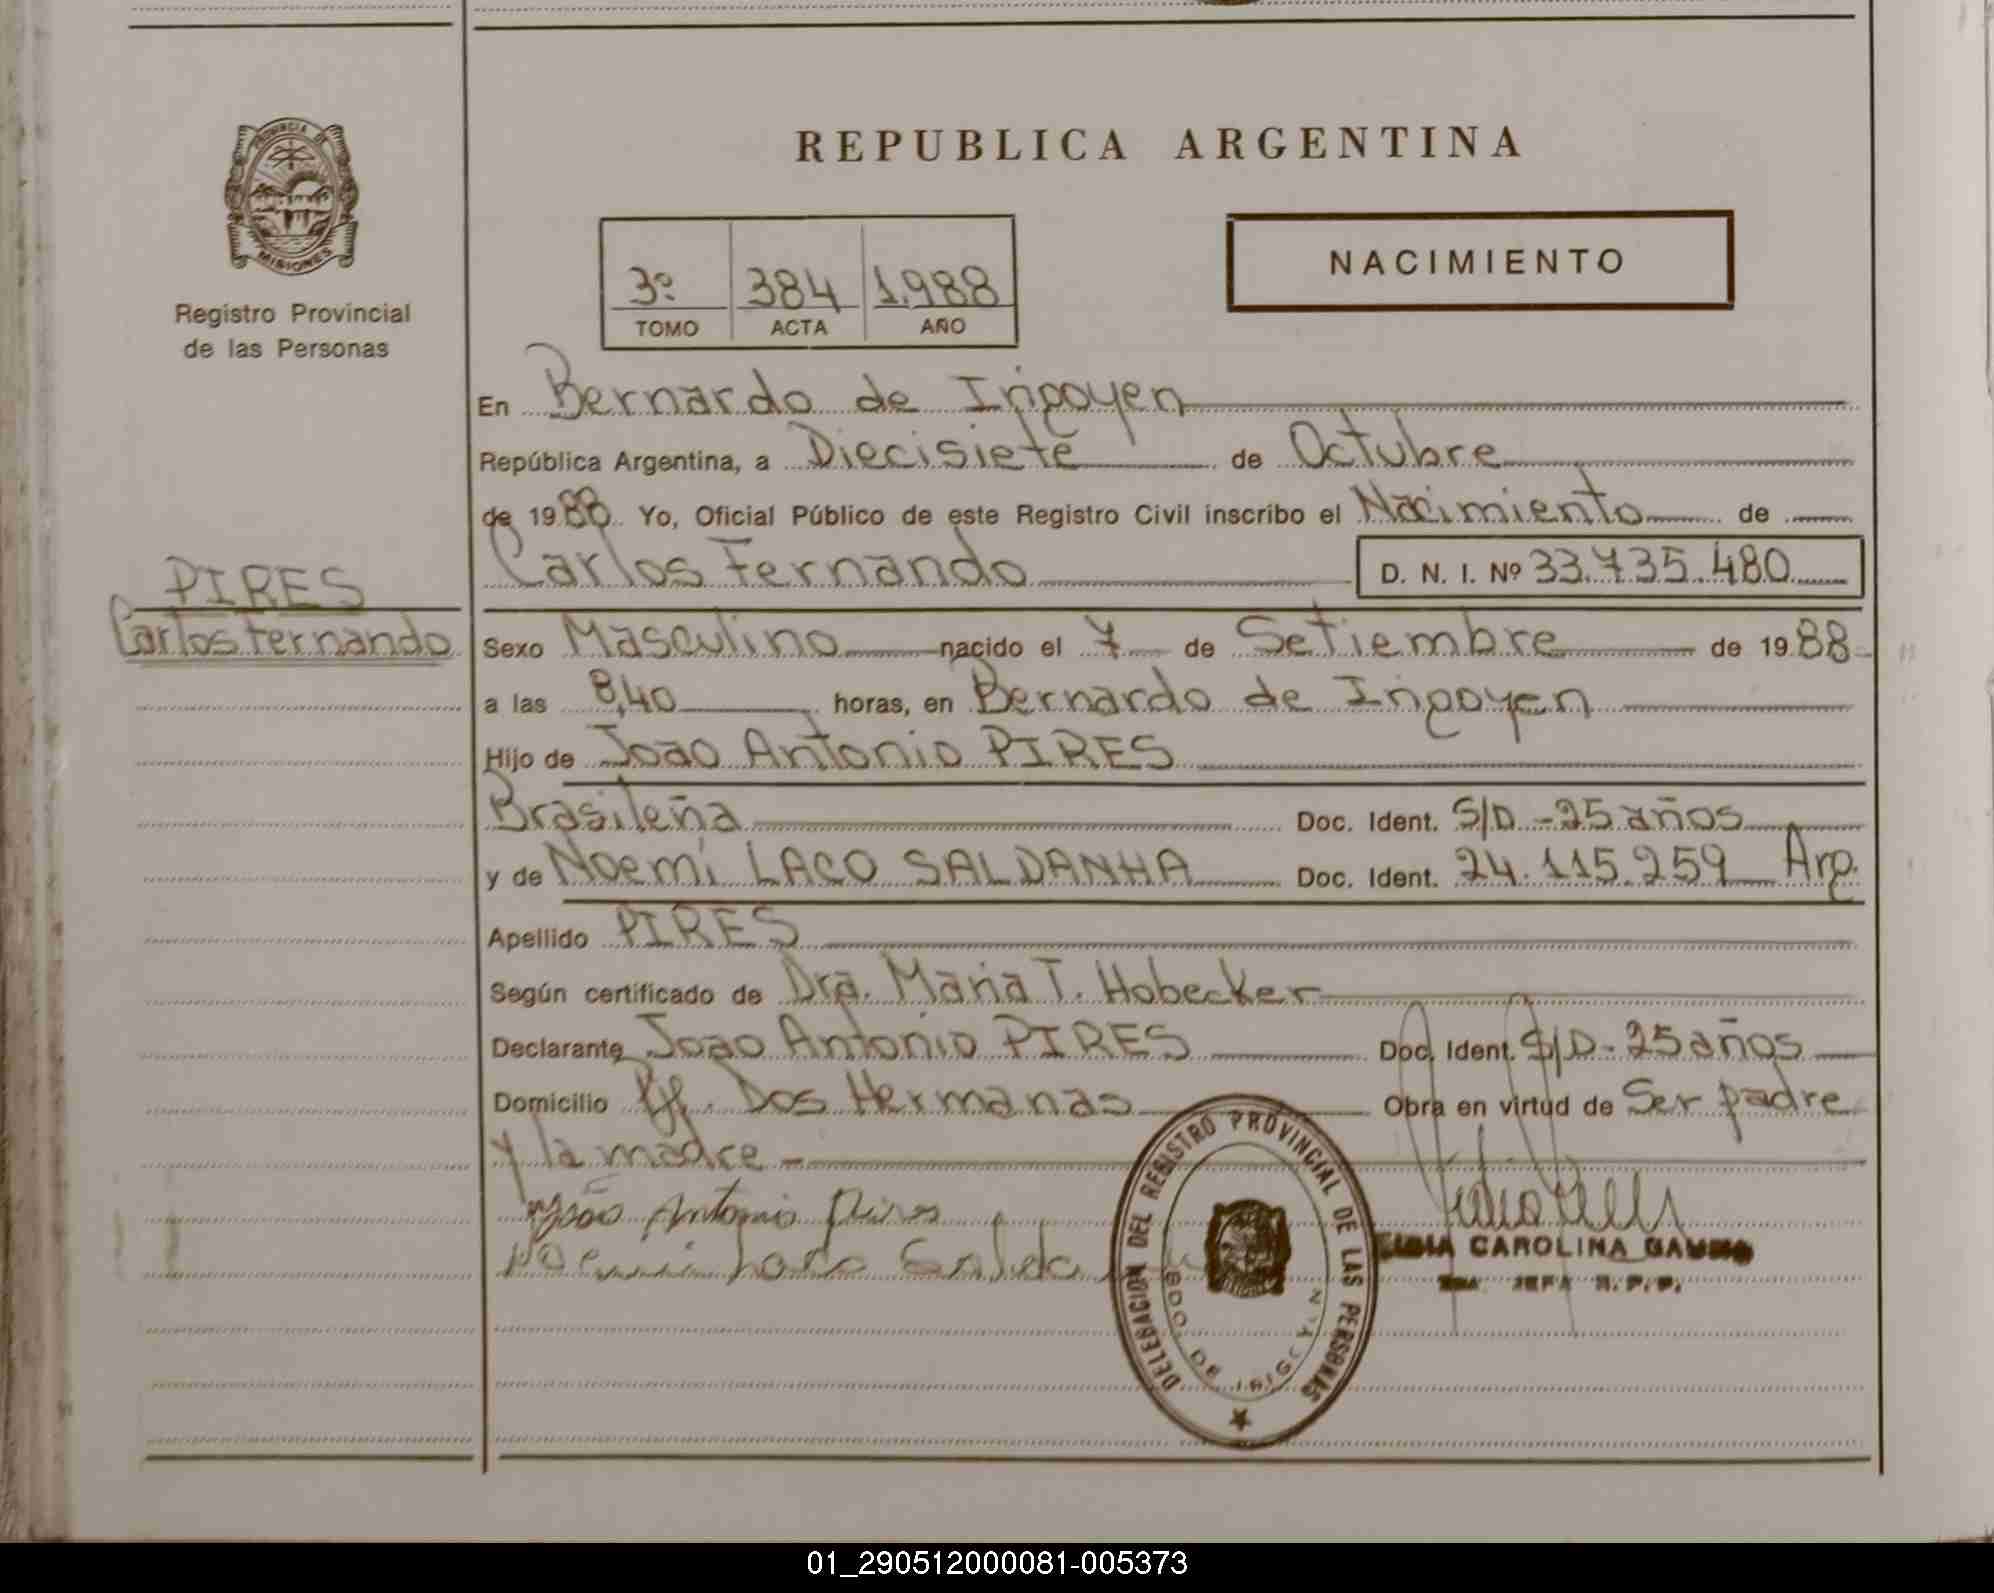 PROVINCIA DE
MISIONES
Registro Provincial
de las Personas
REPUBLICA ARGENTINA
3º 384 1.988
TOMO ACTA AÑO
NACIMIENTO
En Bernardo de Irigoyen
República Argentina, a Diecisiete de Octubre
de 1988 Yo, Oficial Público de este Registro Civil inscribo el Nacimiento de
Carlos Fernando D. N. I. Nº 33.735.480
PIRES
Carlos Fernando
Sexo Masculino nacido el 7 de Setiembre de 1988
a las 8,40 horas, en Bernardo de Irigoyen
Hijo de Joao Antonio PIRES
Brasileña Doc. Ident. S/D - 25 años
y de Noemi LACO SALDANHA Doc. Ident. 24.115.259 Arg.
Apellido PIRES
Según certificado de Dra. Maria T. Hobecker
Declarante Joao Antonio PIRES Doc. Ident. S/D - 25 años
Domicilio Pje. Dos Hermanas Obra en virtud de Ser padre
y la madre -
João Antonio Pires
Noemi Laco Salda
DELEGACION DEL REGISTRO PROVINCIAL DE LAS PERSONAS
BDO. DE IRIGOYEN
CAROLINA
JEFA R.P.P.
01_290512000081-005373